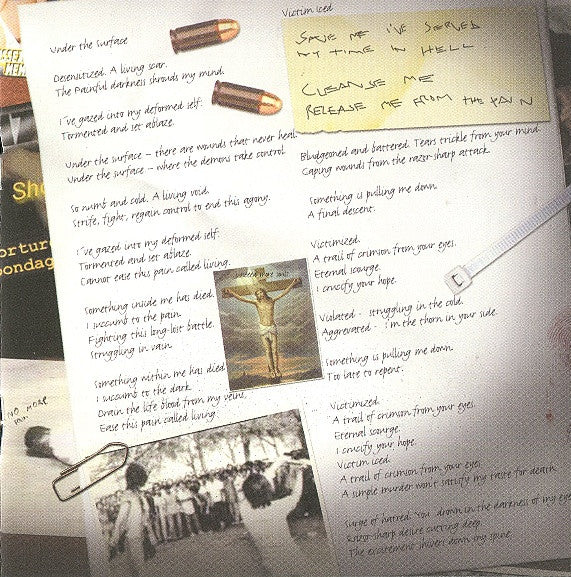 Under the Surface
Desensitized. A living scar.
The Painful darkness shrouds my mind.
I've gazed into my deformed self.
Tormented and set ablaze.
Under the surface - there are wounds that never heal.
Under the surface - where the demons take control.
So numb and cold. A living void.
Strife, fight, regain control to end this agony.
I've gazed into my deformed self.
Tormented and set ablaze.
Cannot ease this pain called living.
Something inside me has died.
I succumb to the pain.
Fighting this long-lost battle.
Struggling in vain.
Something within me has died
I succumb to the dark.
Drain the life blood from my veins,
Ease this pain called living.
Victimized
SAVE ME I'VE SERVED
MY TIME IN HELL
CLEANSE ME
RELEASE ME FROM THE PAIN
Bludgeoned and battered. Tears trickle from your mind.
Gaping wounds from the razor sharp attack.
Something is pulling me down.
A final descent.
Victimized.
A trail of crimson from your eyes.
Eternal scourge.
I crucify your hope.
Violated - struggling in the cold.
Aggrevated - I'm the thorn in your side.
Something is pulling me down.
Too late to repent.
Victimized.
A trail of crimson from your eyes.
Eternal scourge.
I crucify your hope.
Victimized.
A trail of crimson from your eyes.
A simple murder won't satisfy my taste for death.
Surge of hatred. You drown in the darkness of my eye
Razor sharp desire cutting deep.
The excitement shivers down my spine.
need more souls
NO MORE
Sh
ortur
bondag